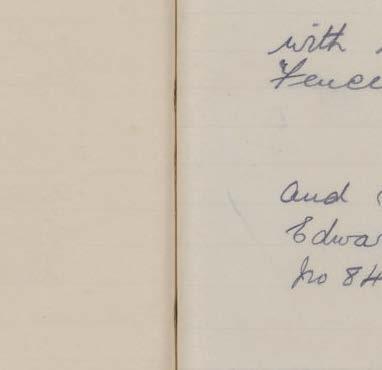 with
"Fence
and
Edwar
No 84